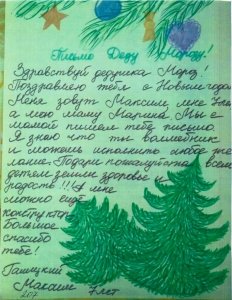 Письмо Деду Морозу!
Здравствуй дедушка Мороз!
Поздравляю тебя с Новым годом
Меня зовут Максим, мне 7 лет
а мою маму Марина. Мы с
мамой пишем тебе письмо.
Я знаю что ты волшебник
и можешь исполнить любое же
лание. Подари пожалуйста всем
детям земли здоровье и
радость!!! А мне
можно ещё
конструктор.
Большое
спасибо
тебе!
Максим 7 лет